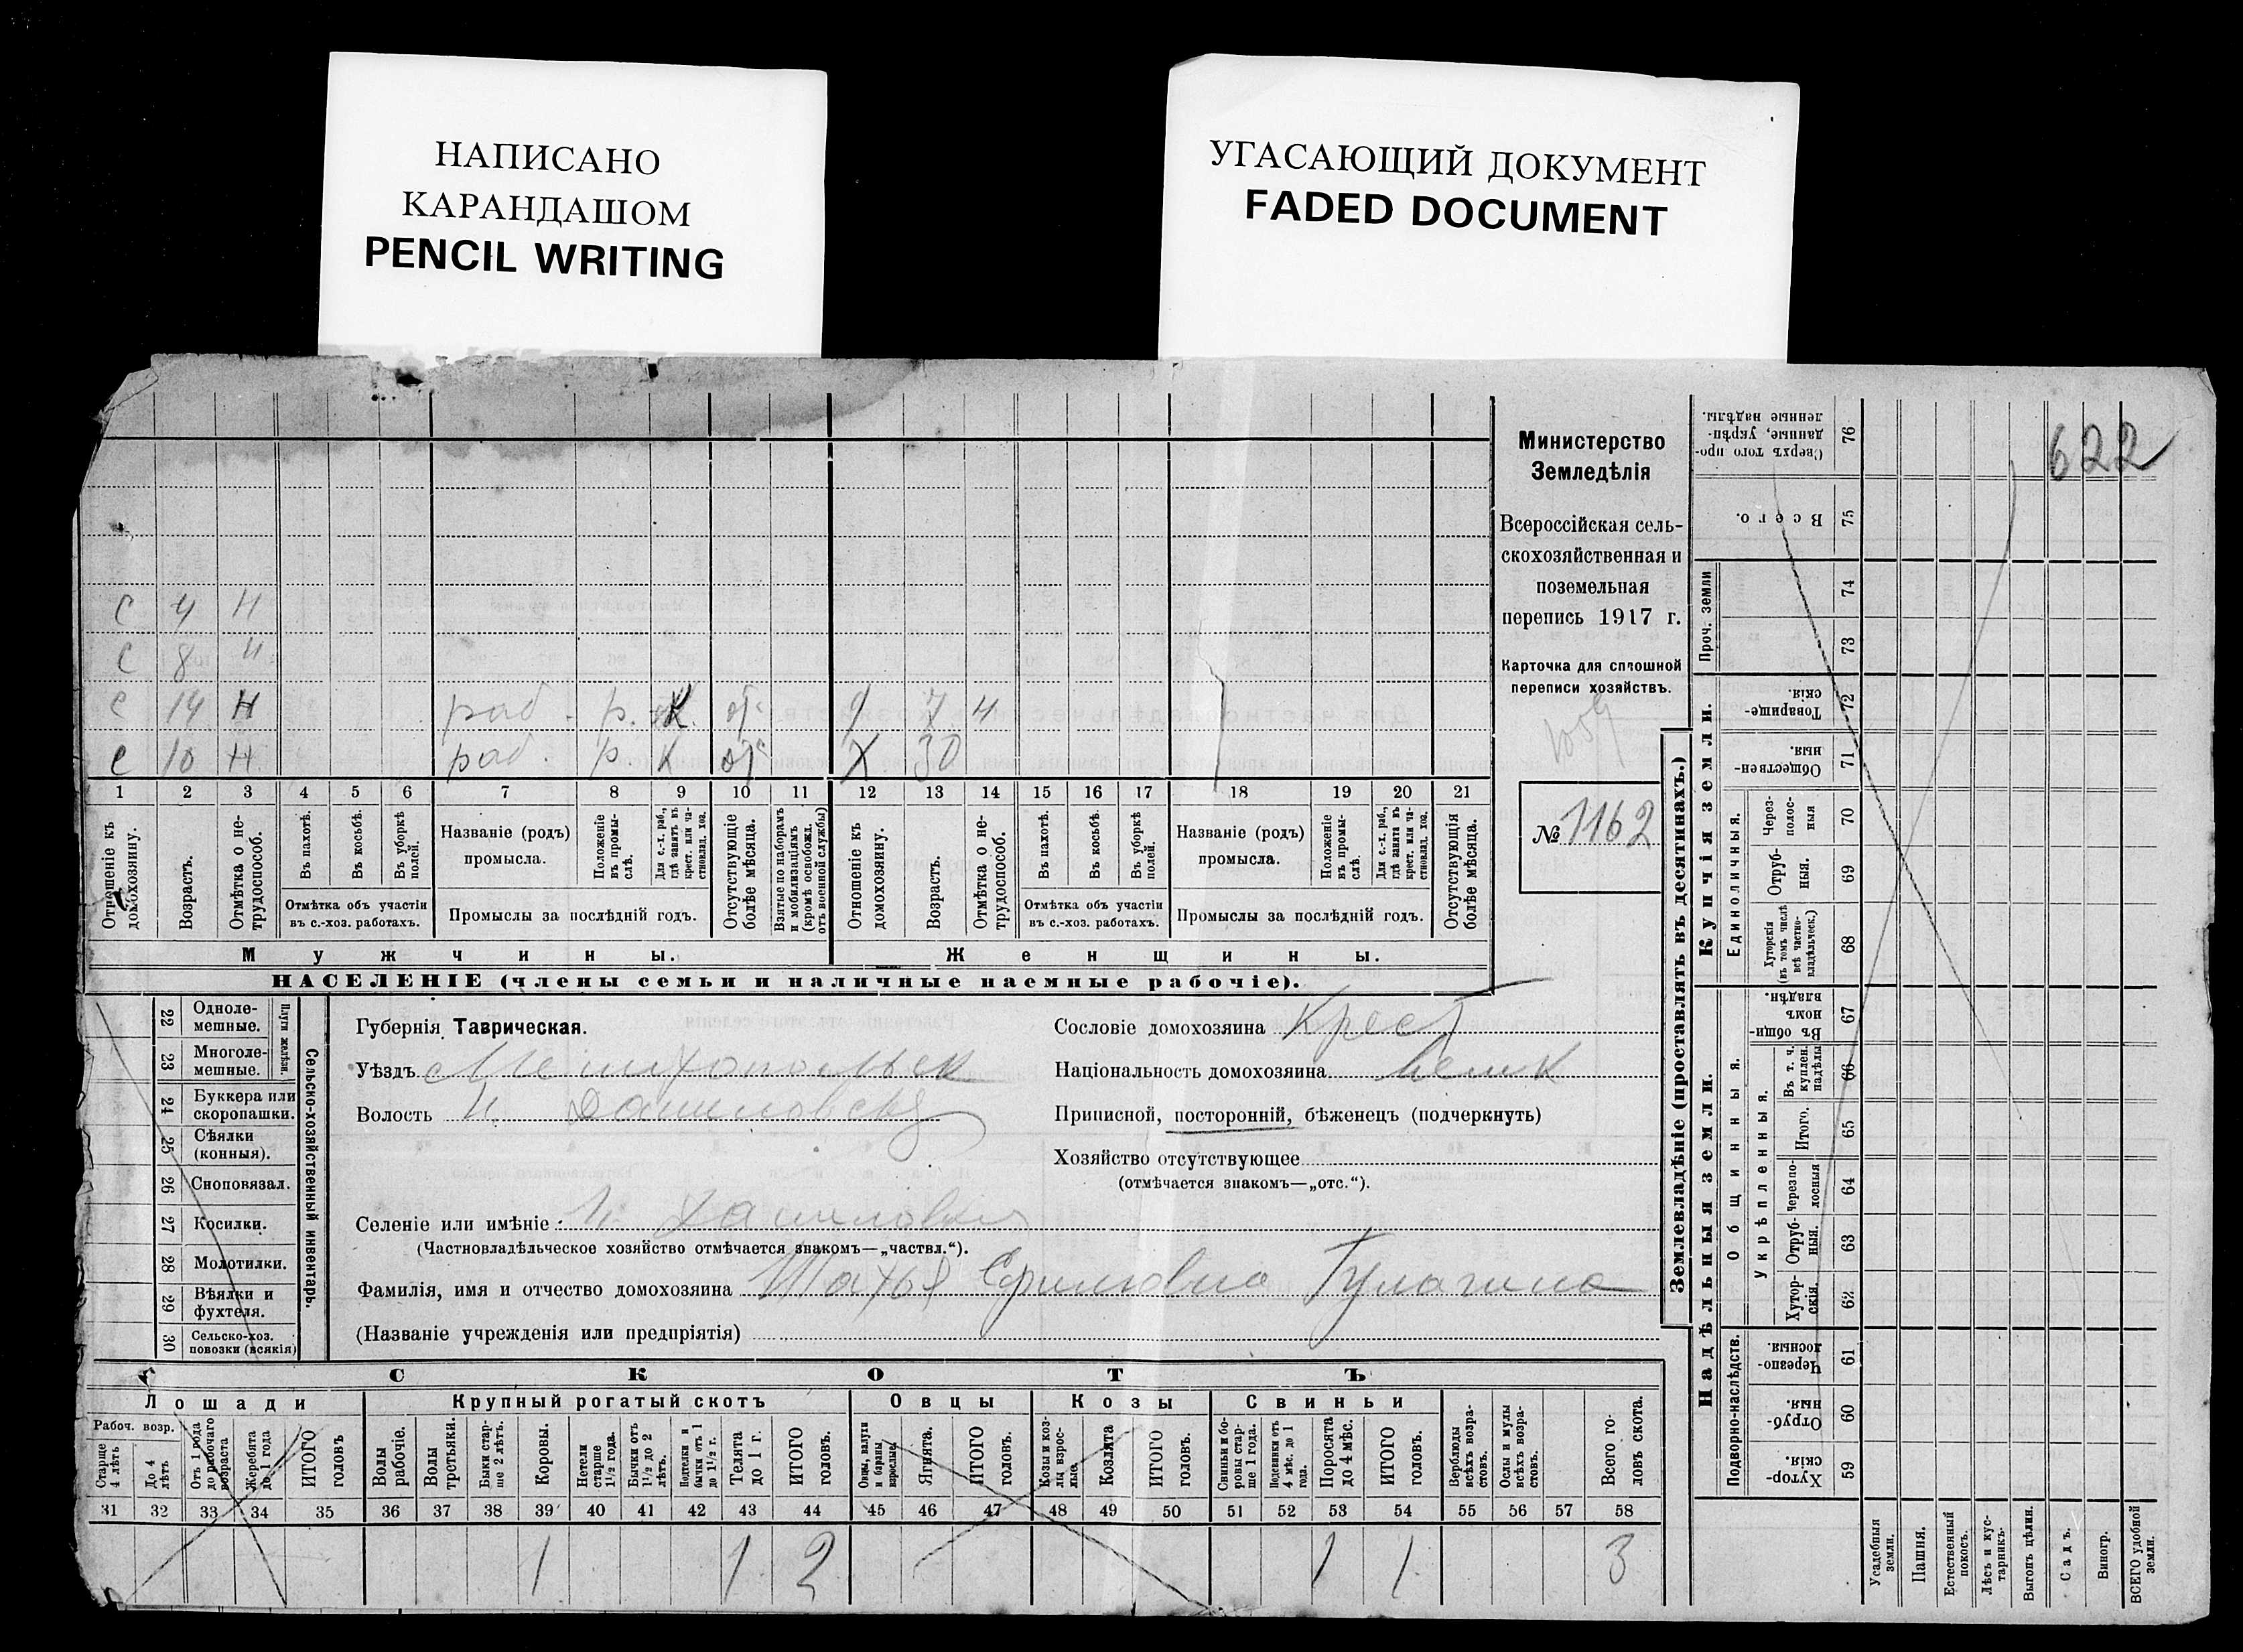 НАПИСАНО
КАРАНДАШОМ
PENCIL WRITING
УГАСАЮЩИЙ ДОКУМЕНТ
FADED DOCUMENT
622
Министерство
Земледѣлія
Всероссійская сель-
скохозяйственная и
поземельная
перепись 1917 г.
Карточка для сплошной
переписи хозяйствъ.
№ 1162
С 4 Н
С 8 Н
С 14 Н раб. р. К. от
С 10 Н раб. р. К от Х 30
1 2 3 4 5 6 7 8 9 10 11 12 13 14 15 16 17 18 19 20 21
Отношеніе къ домохозяину.
Возрастъ.
Отмѣтка о не-трудоспособ.
Въ пахотѣ.
Въ косьбѣ.
Въ уборкѣ полей.
Отмѣтка объ участіи
въ с.-хоз. работахъ.
Названіе (родъ)
промысла.
Положеніе въ промы-слѣ.
Для с.-х. раб., гдѣ занятъ въ крест. или ча-стновлад. хоз.
Промыслы за послѣдній годъ.
Отсутствующіе болѣе мѣсяца.
Взятые по наборамъ и мобилизаціямъ (кромѣ освобожд. отъ военной службы)
Отношеніе къ домохозяину.
Возрастъ.
Отмѣтка о не-трудоспособ.
Въ пахотѣ.
Въ косьбѣ.
Въ уборкѣ полей.
Отмѣтка объ участіи
въ с.-хоз. работахъ.
Названіе (родъ)
промысла.
Положеніе въ промы-слѣ.
Для с.-х. раб., гдѣ занята въ крест. или ча-стновлад. хоз.
Промыслы за послѣдній годъ.
Отсутствующія болѣе мѣсяца.
Мужчины.
Женщины.
НАСЕЛЕНІЕ (члены семьи и наличные наемные рабочіе).
22 Одноле-мешные.
23 Многоле-мешные.
Плуги желѣзн.
24 Буккера или скоропашки.
25 Сѣялки (конныя).
26 Сноповязал.
27 Косилки.
28 Молотилки.
29 Вѣялки и фухтеля.
30 Сельско-хоз. повозки (всякія)
Сельско-хозяйственный инвентарь.
Губернія Таврическая.
Уѣздъ Мелитопольск
Волость Н Даниловск
Селеніе или имѣніе Н. Даниловка
(Частновладѣльческое хозяйство отмѣчается знакомъ—„частвл.“).
Фамилія, имя и отчество домохозяина
(Названіе учрежденія или предпріятія)
Сословіе домохозяина Крест
Національность домохозяина
Приписной, посторонній, бѣженецъ (подчеркнуть)
Хозяйство отсутствующее
(отмѣчается знакомъ—„отс.“).
СКОТЪ
Лошади
Крупный рогатый скотъ
Овцы
Козы
Свиньи
Рабоч. возр.
Старше 4 лѣтъ
До 4 лѣтъ
Отъ 1 года до рабочаго возраста
Жеребята до 1 года
ИТОГО головъ
Волы рабочіе.
Волы третьяки.
Быки стар-ше 2 лѣтъ.
Коровы.
Нетели старше 1½ года.
Бычки отъ 1½ до 2 лѣтъ.
Подтелки и бычки отъ 1 до 1½ г.
Телята до 1 г.
ИТОГО головъ.
Овцы, валухи и бараны взрослые.
Ягнята.
ИТОГО головъ.
Козы и коз-лы взрос-лые.
Козлята
ИТОГО головъ.
Свиньи и бо-ровы стар-ше 1 года.
Подсвинки отъ 4 мѣс. до 1 года.
Поросята до 4 мѣс.
ИТОГО головъ.
Верблюды всѣхъ возра-стовъ.
Ослы и мулы всѣхъ возра-стовъ.
Всего го-ловъ скота.
31 32 33 34 35 36 37 38 39 40 41 42 43 44 45 46 47 48 49 50 51 52 53 54 55 56 57 58
1 1 2 1 1 3
Землевладѣніе (проставлять въ десятинахъ.)
Купчія земли.
Надѣльныя земли.
76 Сверхъ того про-данные, укрѣп-ленные надѣлы.
75 Всего.
Проч. земли
74
73
72 Товарище-скія.
71 Обществен-ныя.
Единоличныя.
70 Через-полос-ныя
69 Отруб-ныя.
68 Хуторскія (въ томъ числѣ всѣ частно-владѣльческ.)
67 Въ общи-номъ владѣн.
Общинныя.
Укрѣпленныя.
66 Въ т. ч. куплен. надѣлы
65 Итого.
64 Черезпо-лосныя
63 Отруб-ныя.
62 Хутор-скія.
Подворно-наслѣдств.
61 Черезпо-лосныя.
60 Отруб-ныя.
59 Хутор-скія.
Усадебныя земли.
Пашня.
Естественный покосъ.
Лѣсъ и кус-тарникъ.
Выгонъ цѣлин.
Садъ.
Виногр.
ВСЕГО удобной земли.